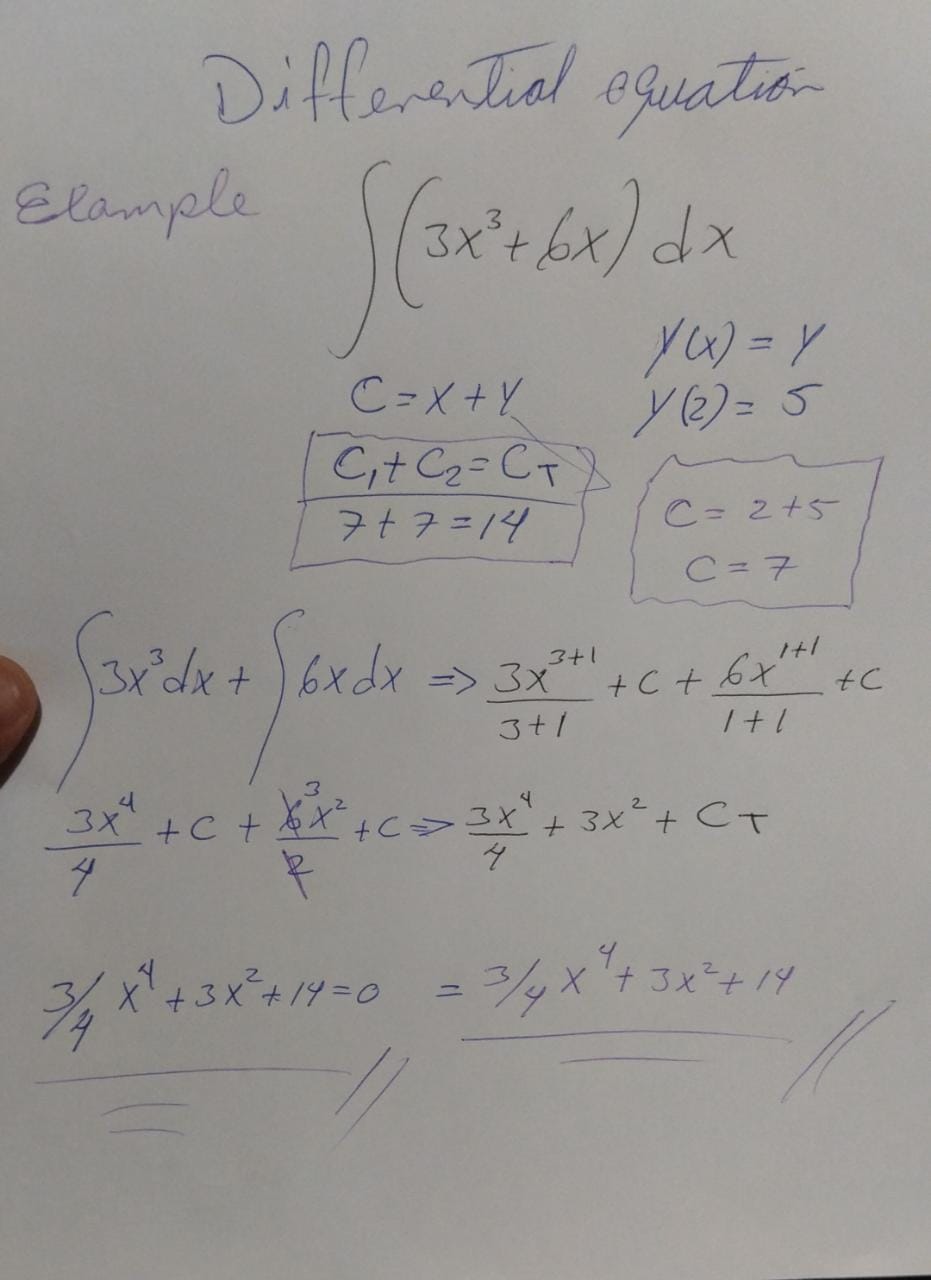 Differential equation
Elample
∫(3x³+6x) dx
y(x) = y
C=x+y
y(2)= 5
C₁+C₂=C_T
7+7=14
C= 2+5
C=7
∫3x³dx + ∫6xdx => 3x^(3+1)/(3+1) +C + 6x^(1+1)/(1+1) +C
3x⁴/4 +C + 6̸³x²/2̸ +C => 3x⁴/4 + 3x² + C_T
3/4 x⁴+3x²+14=0 = 3/4 x⁴+3x²+14